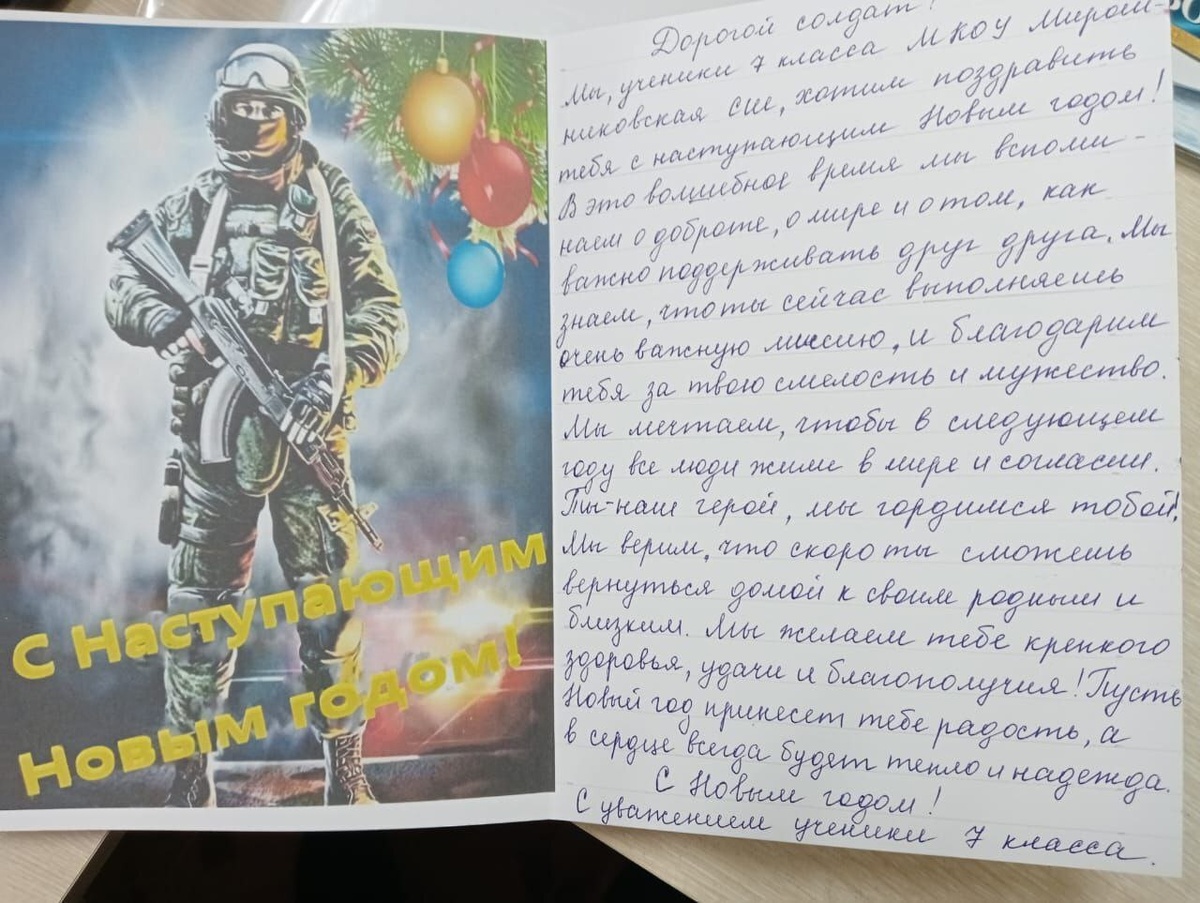 С Наступающим
Новым годом!
Дорогой солдат!
Мы, ученики 7 класса МКОУ Мирош-
никовская СШ, хотим поздравить
тебя с наступающим Новым годом!
В это волшебное время мы вспоми-
наем о доброте, о мире и о том, как
важно поддерживать друг друга. Мы
знаем, что ты сейчас выполняешь
очень важную миссию, и благодарим
тебя за твою смелость и мужество.
Мы мечтаем, чтобы в следующем
году все люди жили в мире и согласии.
Ты-наш герой, мы гордимся тобой!
Мы верим, что скоро ты сможешь
вернуться домой к своим родным и
близким. Мы желаем тебе крепкого
здоровья, удачи и благополучия! Пусть
Новый год принесет тебе радость, а
в сердце всегда будет тепло и надежда.
С Новым годом!
С уважением ученики 7 класса.